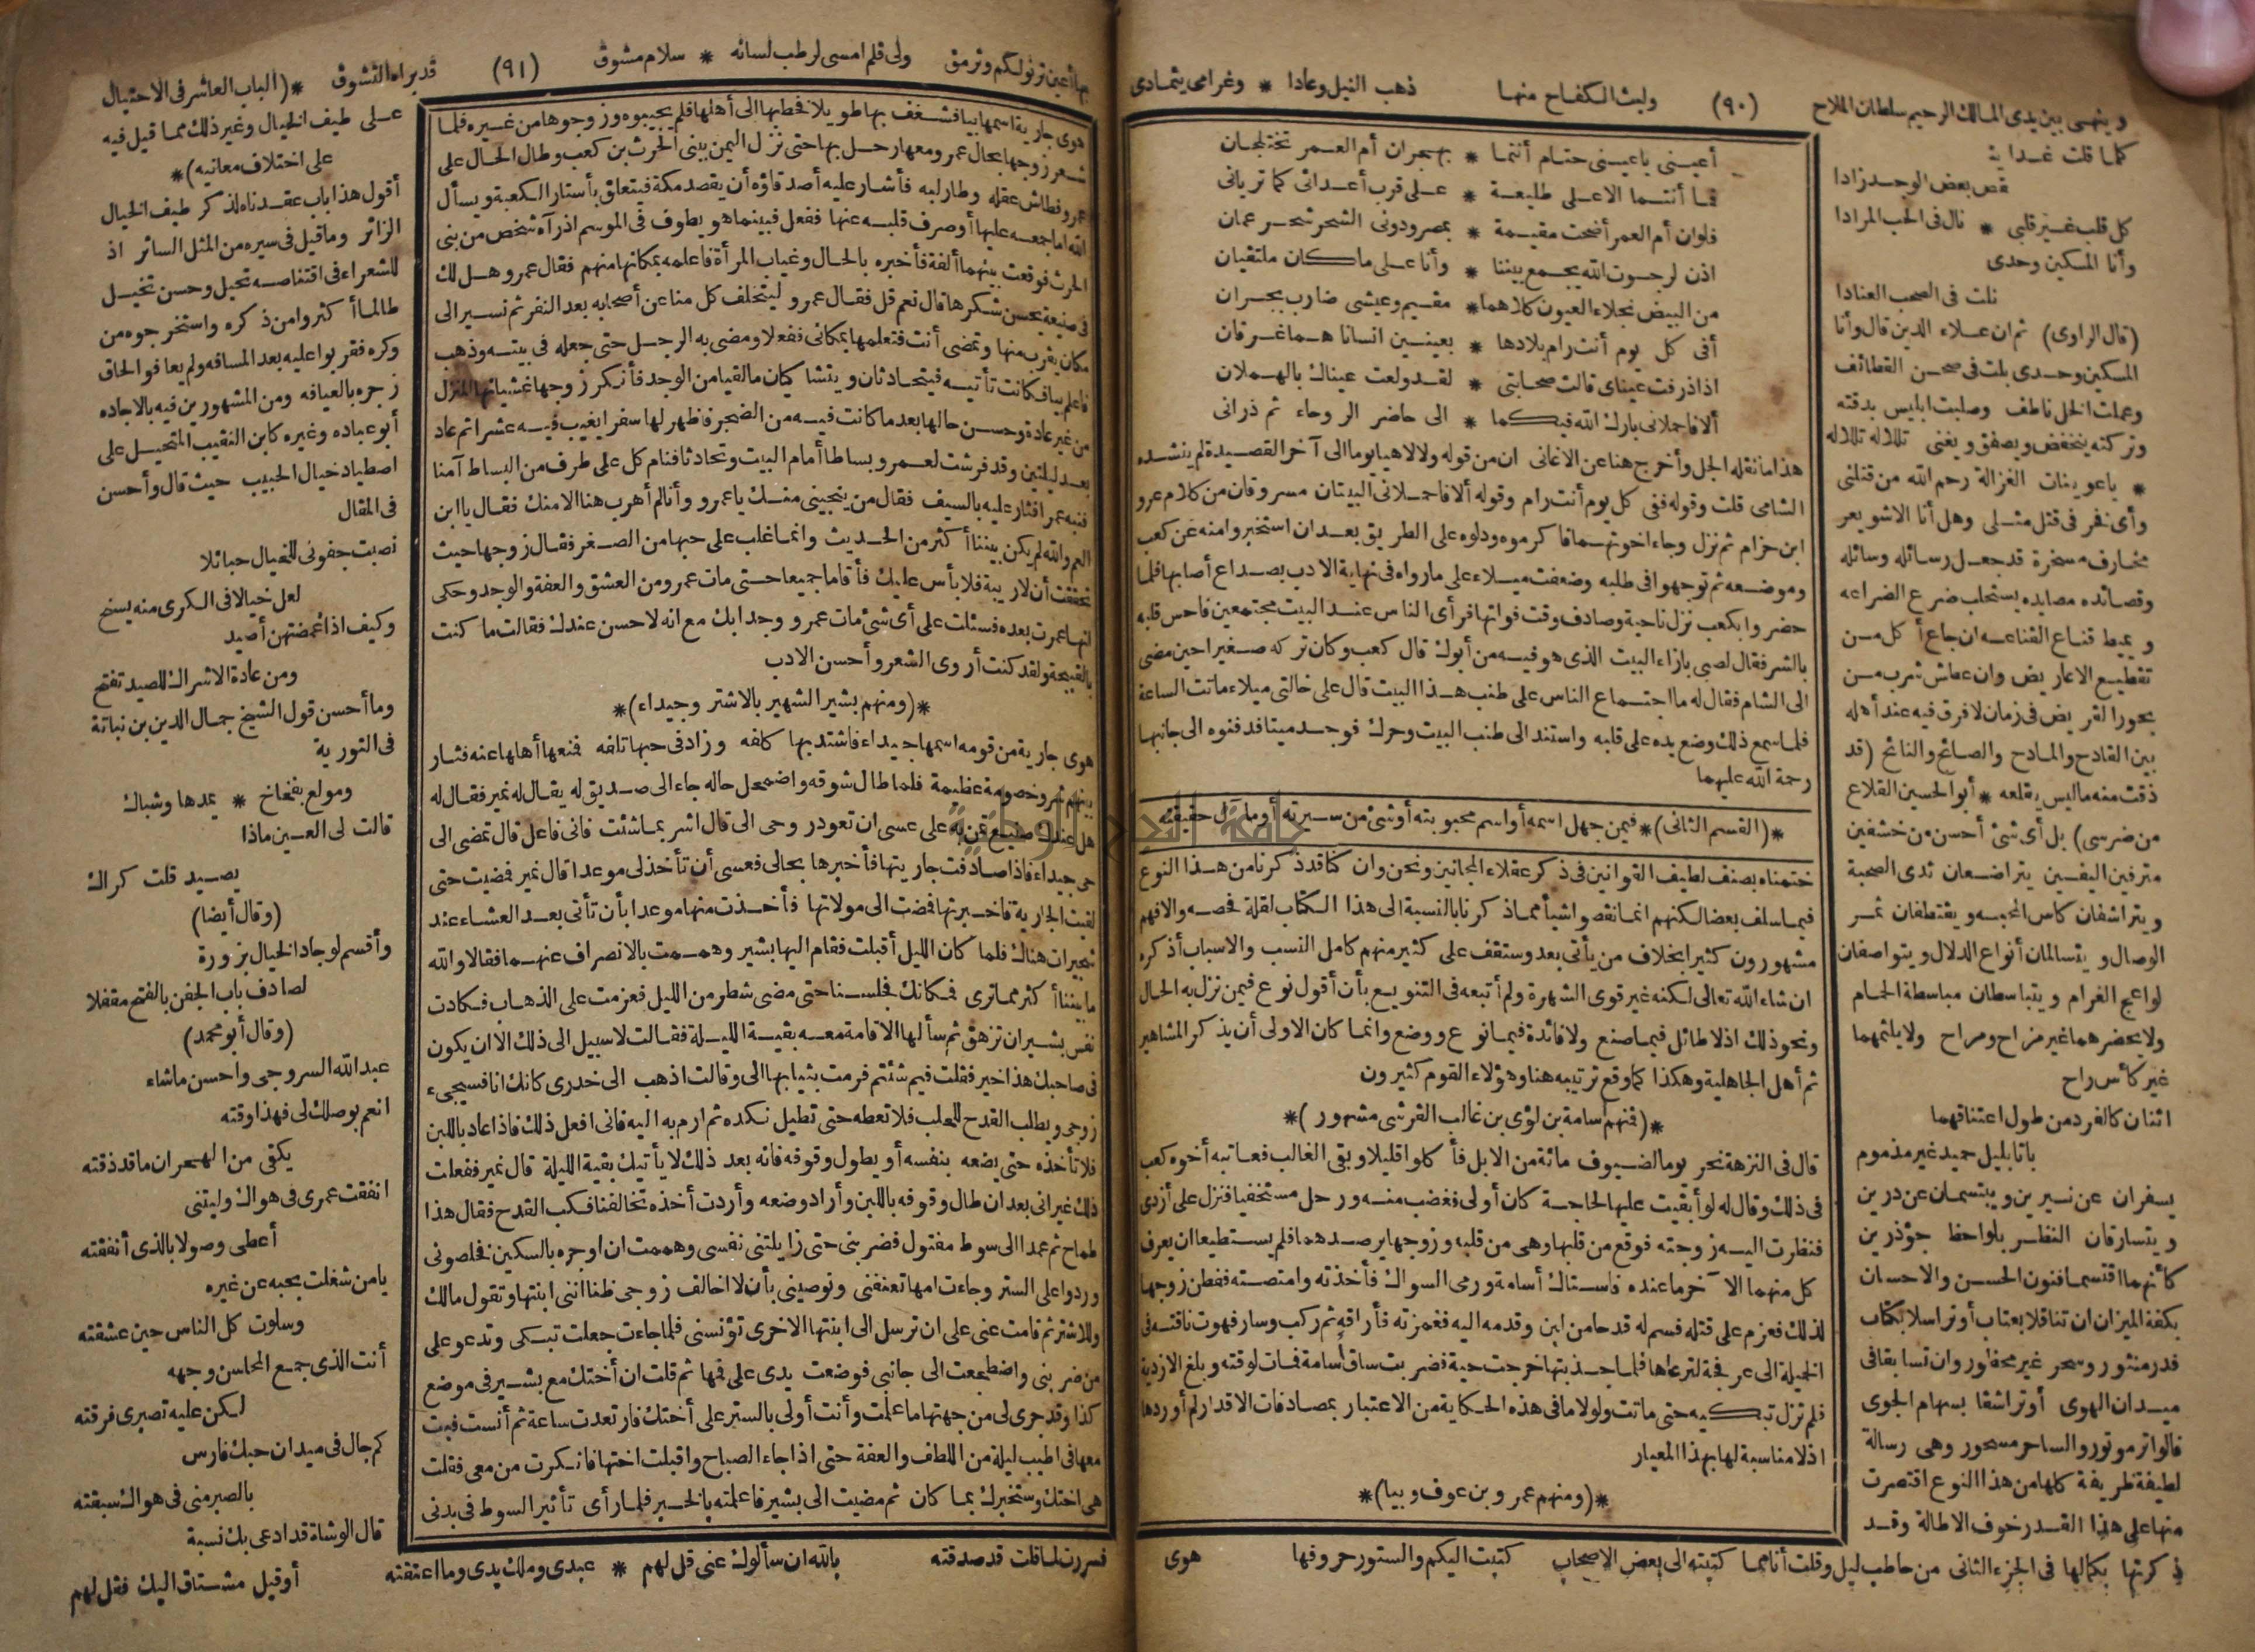 وينهى بين يدى المالك الرحيم سلطان الملاح (٩٠) وليث الكفاح منها ذهب النيل وعادا * وغرامى يتمادى
كما قلت غداية
قص بعض الوجد زادا
كل قلب غير قلبى * نال فى الحب المرادا
وأنا المسكين وحدى
نلت فى الصحب العنادا
(قال الراوى) ثم ان علاء الدين قال وأنا
المسكين وحدى بلت فى صحن القطائف
وعملت الخل ناطف وصلبت ابليس بدقته
وتركته ينخفض ويصفق ويغنى تللاله تللاله
* ياعوينات الغزالة رحم الله من قتلنى
وأى نفر فى قتل مثلى وهل أنا الاشويعر
بمخارف مسخرة قد جعل رسائله وسائله
وقصائده مصايده يستحلب ضرع الضراعه
ويميط قناع القناعه ان جاع أكل من
تقطيع الاعاريض وان عطش شرب من
بحور القريض فى زمان لا فرق فيه عند أهله
بين القادح والمادح والصائح والنائح (قد
ذقت منه ماليس يقلعه * أبو الحسين القلاع
من ضرسى) بل أى شئ أحسن من خشفين
مترفين اليفين يتراضعان ثدى الصحبة
ويتراشفان كاس المحبه ويقتطفان ثمر
الوصال ويتسالمان أنواع الدلال ويتواصفان
لواعج الغرام ويتباسطان مباسطة الحمام
ولا يحضرهما غير مزاح ومراح ولا يلثمهما
غير كأس راح
اثنان كالفرد من طول اعتناقهما
باتا بليل حميد غير مذموم
يسفران عن نسيرين ويبتسمان عن درين
ويتسارقان النظر بلواحظ جؤذرين
كأنهما اقتسما فنون الحسن والاحسان
بكفة الميزان ان تناقلا بعتاب أو تراسلا بكتاب
فدر منثور وسحر غير محظور وان تسابقا فى
ميدان الهوى أو تراشقا بسهام الجوى
فالواتر موتور والساحر مسحور وهى رسالة
لطيفة ظريفة كلها من هذا النوع اقتصرت
منها على هذا القدر خوف الاطالة وقد
ذكرتها بكمالها فى الجزء الثانى من حاطب ليل وقلت أنا مما كتبته الى بعض الاصحاب كتبت اليكم والستور حروفها
أعينى ياعينى حتام أنتما * بهجران أم العمر تختلجان
فما أنتما الا على طليعة * على قرب أعدائى كما تريانى
فلو ان أم العمر أضحت مقيمة * بمصر ودونى الشحر شحر عمان
اذن لرجوت الله يجمع بيننا * وأنا على ما كان ملتقيان
من البيض نجلاء العيون كلاهما * مقيم وعيشى ضارب بجران
أفى كل يوم أنت رام بلادها * بعينين انسانا هما غرقان
اذا ذرفت عيناى قالت صحابتى * لقد ولعت عيناك بالهملان
ألا فاحملانى بارك الله فيكما * الى حاضر الروحاء ثم ذرانى
هذا ما نقله الجل وأخرج هنا عن الاغانى ان من قوله ولا لاهيا يوما الى آخر القصيدة لم ينشده
الشامى قلت وقوله ففى كل يوم أنت رام وقوله ألا فاحملانى البيتان مسروقان من كلام عروة
ابن حزام ثم نزل وجاء اخوتهما فاكرموه ودلوه على الطريق بعد ان استخبروا منه عن كعب
وموضعه ثم توجهوا فى طلبه وضعفت ميلاء على ما رواه فى نهاية الادب بصداع أصابها فلما
حضروا بكعب نزل ناحية وصادف وقت فواتها فرأى الناس عند البيت مجتمعين فاحس قلبه
بالشر فقال لصبى بازاء البيت الذى هو فيه من أبوك قال كعب وكان تركه صغيرا حين مضى
الى الشام فقال له ما اجتماع الناس على طنب هذا البيت قال على خالتى ميلاء ماتت الساعة
فلما سمع ذلك وضع يده على قلبه واستند الى طنب البيت وحرك فوجد ميتا فدفنوه الى جانبها
رحمة الله عليهما
*(القسم الثانى)* فيمن جهل اسمه أو اسم محبوبته أو شئ من سيرته أو مآل حقيقته
ختمناه بصنف لطيف القوانين فى ذكر عقلاء المجانين ونحن وان كنا قد ذكرنا من هذا النوع
فيما سلف بعضا لكنهم انما نقصوا شيأ مما ذكرنا بالنسبة الى هذا الكتاب لقلة فحصه والا فهم
مشهورون كثيرا بخلاف من يأتى بعد وستقف على كثير منهم كامل النسب والاسباب أذكره
ان شاء الله تعالى لكنه غير قوى الشهرة ولم أتبعه فى التنويع بأن أقول نوع فيمن نزل به الحال
ونحو ذلك اذ لا طائل فيما صنع ولا فائدة فيما نوع ووضع وانما كان الاولى أن يذكر المشاهير
ثم أهل الجاهلية وهكذا كما وقع ترتيبه هنا وهؤلاء القوم كثيرون
*(فمنهم أسامة بن لؤى بن غالب القرشى مشهور)*
قال فى النزهة نحر يوما لضيوف مائة من الابل فأكلوا قليلا وبقى الغالب فعاتبه أخوه كعب
فى ذلك وقال له لو أبقيت عليها لحاجة كان أولى فغضب منه ورحل مستخفيا فنزل على أزدى
فنظرت اليه زوجته فوقع من قلبها وهى من قلبه وزوجها يرصدهما فلم يستطيعا ان يعرف
كل منهما الا آخر ما عنده فاستاك أسامة ورمى السواك فأخذته وامتصته ففطن زوجها
لذلك فعزم على قتله فسم له قدحا من لبن وقدمه اليه فغمزته فأراقه ثم ركب وسار فهوت ناقته فى
الخيلة الى عرفجة لترعاها فلما جذبتها خرجت حية فضربت ساق أسامة فمات لوقته وبلغ الازدية
فلم تزل تبكيه حتى ماتت ولولا ما فى هذه الحكاية من الاعتبار بمصادفات الاقدار لم أوردها
اذ لا مناسبة لها بهذا المعيار
*(ومنهم عمرو بن عوف وبيا)*
هوى
بها أعين ترنو لكم وترمق ولى قلم امسى لرطب لسانه * سلام مشوق (٩١) قد براه التشوق *(الباب العاشر فى الاحتيال
هوى جارية اسمها بيا فشغف بها طويلا فخطبها الى أهلها فلم يجيبوه وزوجوها من غيره فلما
شعر زوجها بحال عمرو معها رحل بها حتى نزل اليمن ببنى الحرث بن كعب وطال الحال على
عمرو فطاش عقله وطار لبه فأشار عليه أصدقاؤه أن يقصد مكة فيتعلق بأستار الكعبة ويسأل
الله اما جمعه عليها أو صرف قلبه عنها ففعل فبينما هو يطوف فى الموسم اذ رآه شخص من بنى
الحرث فوقعت بينهما ألفة فأخبره بالحال وغياب المرأة فاعلمه بمكانها منهم فقال عمرو هل لك
فى صنيعة يحسن شكرها قال نعم قل فقال عمرو ليتخلف كل منا عن أصحابه بعد النفر ثم نسير الى
مكان يقرب منها وتمضى أنت فتعلمها بمكانى ففعلا ومضى به الرجل حتى جعله فى بيته وذهب
فاعلم بيا فكانت تأتيه فيتحادثان ويتشاكيان ما لقيا من الوجد فأنكر زوجها غشيانها المنزل
من غير عادة وحسن حالها بعد ما كانت فيه من الضجر فاظهر لها سفرا يغيب فيه عشرا ثم عاد
بعد ليلتين وقد فرشت لعمرو بساطا أمام البيت وتحادثا فنام كل على طرف من البساط آمنا
فنبه عمرا فثار عليه بالسيف فقال من ينجينى منك ياعمرو وأنا لم أهرب هنا الا منك فقال ياابن
العم والله لم يكن بيننا أكثر من الحديث وانما غلب على حبها من الصغر فقال زوجها حيث
تحققت أن لا ريبة فلا بأس عليك فأقاما جميعا حتى مات عمرو من العشق والعفة والوجد وحكى
انها عمرت بعده فسئلت على أى شئ مات عمرو وجدا بك مع انه لا حسن عندك فقالت ما كنت
بالقبيحة ولقد كنت أروى الشعر وأحسن الادب
*(ومنهم بشير الشهير بالاشتر وجيداء)*
هوى جارية من قومه اسمها جيداء فاشتد بها كلفه وزاد فى حبها تلفه فمنعها أهلها عنه فثار
بينهم شر وخصومة عظيمة فلما طال شوقه واضمحل حاله جاء الى صديق له يقال له نمير فقال له
هل عندك صنيع تمن به على عسى ان تعود روحى الى قال اشر بما شئت فانى فاعل قال تمضى الى
حى جيداء فاذا صادفت جاريتها فأخبرها بحالى فعسى أن تأخذ لى موعدا قال نمير فمضيت حتى
لقيت الجارية فاخبرتها فمضت الى مولاتها فأخذت منها موعدا بأن تأتى بعد العشاء عند
شجيرات هناك فلما كان الليل أقبلت فقام اليها بشير وهممت بالانصراف عنهما فقالا والله
ما بيننا أكثر مما ترى فمكانك فجلسنا حتى مضى شطر من الليل فعزمت على الذهاب فكادت
نفس بشير ان تزهق ثم سألها الاقامة معه بقية الليلة فقالت لا سبيل الى ذلك الا ان يكون
فى صاحبك هذا خير فقلت فيم شئتم فرمت بثيابها الى وقالت اذهب الى خدرى كانك أنا فسيجىء
زوجى ويطلب القدح للحلب فلا تعطه حتى تطيل نكده ثم ارم به اليه فانى افعل ذلك فاذا عاد باللبن
فلا تأخذه حتى يضعه بنفسه أو يطول وقوفه فانه بعد ذلك لا يأتيك بقية الليلة قال نمير ففعلت
ذلك غير انى بعد ان طال وقوفه باللبن وأراد وضعه وأردت أخذه تخالفنا فكب القدح فقال هذا
طماح ثم عمد الى سوط مفتول فضربنى حتى زايلتنى نفسى وهممت ان اوجره بالسكين فخلصونى
وردوا على الستر وجاءت امها تعنفنى وتوصينى بأن لا اخالف زوجى ظنا اننى ابنتها وتقول مالك
وللاشتر ثم قامت عنى على ان ترسل الى ابنتها الاخرى تؤنسنى فلما جاءت جعلت تبكى وتدعو على
من ضربنى واضطجعت الى جانبى فوضعت يدى على فمها ثم قلت ان أختك مع بشير فى موضع
كذا وقد جرى لى من جهتها ما علمت وأنت أولى بالستر على أختك فارتعدت ساعة ثم أنست فبت
معها فى اطيب ليلة من اللطف والعفة حتى اذا جاء الصباح واقبلت اختها فانكرت من معى فقلت
هى اختك وستخبرك بما كان ثم مضيت الى بشير فاعلمته بالخبر فلما رأى تأثير السوط فى بدنى
على طيف الخيال وغير ذلك مما قيل فيه
على اختلاف معانيه)*
أقول هذا باب عقدناه لذكر طيف الخيال
الزائر وما قيل فى سيره من المثل السائر اذ
للشعراء فى اقتناصه تحيل وحسن تخيل
طالما أكثروا من ذكره واستخرجوه من
وكره فقربوا عليه بعد المسافه ولم يعافوا لحاق
زجره بالعيافه ومن المشهورين فيه بالاجاده
أبو عباده وغيره كابن النقيب المتحيل على
اصطياد خيال الحبيب حيث قال وأحسن
فى المقال
نصبت جفونى للخيال حبائلا
لعل خيالا فى الكرى منه يسنح
وكيف اذا غمضتهن أصيد
ومن عادة الاشراك للصيد تفتح
وما أحسن قول الشيخ جمال الدين بن نباتة
فى التورية
ومولع بفخاخ * يمدها وشباك
قالت لى العين ماذا
يصيد قلت كراك
(وقال أيضا)
وأقسم لو جاد الخيال بزورة
لصادف باب الجفن بالفتح مقفلا
(وقال أبو محمد)
عبد الله السروجى واحسن ماشاء
انعم بوصلك لى فهذا وقته
يكفى من الهجران ما قد ذقته
انفقت عمرى فى هواك وليتنى
أعطى وصولا بالذى أنفقته
يامن شغلت بحبه عن غيره
وسلوت كل الناس حين عشقته
أنت الذى جمع المحاسن وجهه
لكن عليه تصبرى فرقته
كم جال فى ميدان حبك فارس
بالصبر منى فى هواك سبقته
قال الوشاة قد ادعى بك نسبة
فسررت لما قلت قد صدقته بالله ان سألوك عنى قل لهم * عبدى وملك يدى وما اعتقته أو قيل مشتاق اليك فقل لهم